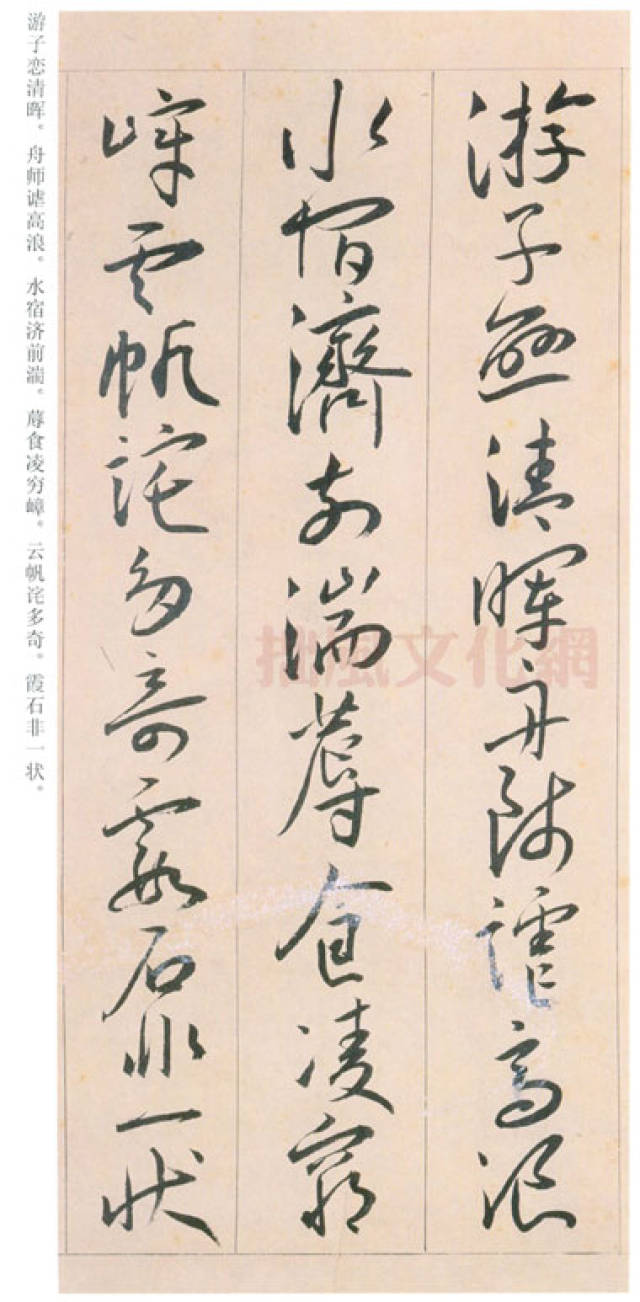 游子戀清暉舟師謔高浪
水宿濟前湍蓐食凌窮
嶂雲帆詫多奇霞石非一状
游子恋清晖。舟师谑高浪。水宿济前湍。蓐食凌穷嶂。云帆诧多奇。霞石非一状。
拙風文化網